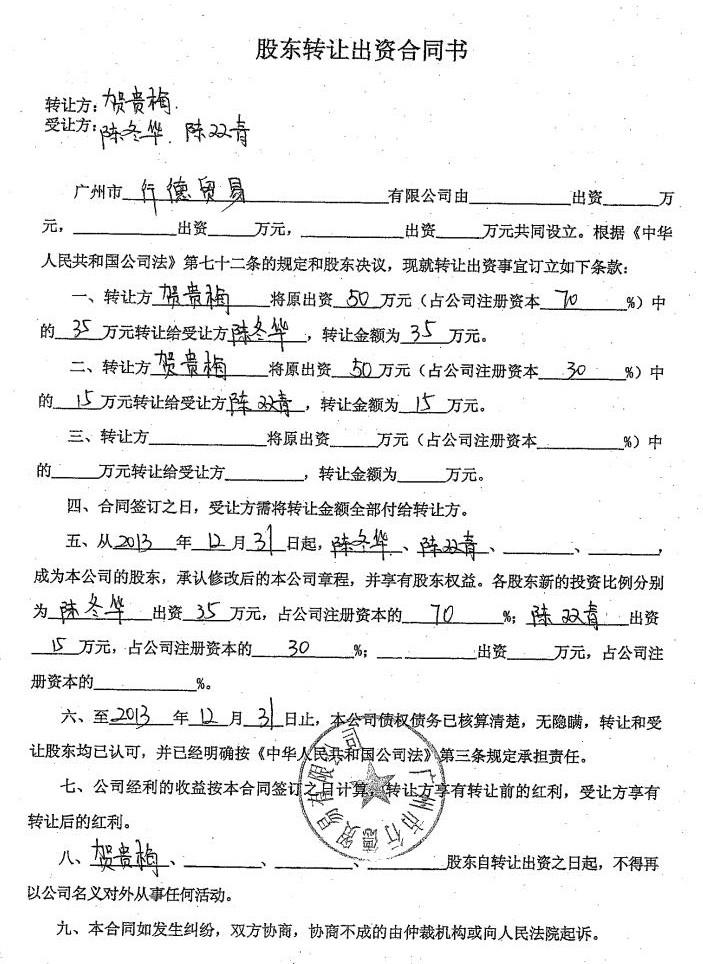 股东转让出资合同书
转让方：贺贵梅.
受让方：陈冬华、陈双青
广州市 行德贸易 有限公司由 出资 万
元， 出资 万元， 出资 万元共同设立。根据《中华
人民共和国公司法》第七十二条的规定和股东决议，现就转让出资事宜订立如下条款：
一、转让方 贺贵梅 将原出资 50 万元（占公司注册资本 70 %）中
的 35 万元转给受让方 陈冬华 ，转让金额为 35 万元。
二、转让方 贺贵梅 将原出资 50 万元（占公司注册资本 30 %）中
的 15 万元转给受让方 陈双青 ，转让金额为 15 万元。
三、转让方 将原出资 万元（占公司注册资本 %）中
的 万元转给受让方 ，转让金额为 万元。
四、合同签订之日，受让方需将转让金额全部付给转让方。
五、从 2013 年 12 月 31 日起， 陈冬华 、 陈双青 、 、 ，
成为本公司的股东，承认修改后的本公司章程，并享有股东权益。各股东新的投资比例分别
为 陈冬华 出资 35 万元，占公司注册资本的 70 %； 陈双青 出资
15 万元，占公司注册资本的 30 %； 出资 万元，占公司注
册资本的 %。
六、至 2013 年 12 月 31 日止，本公司债权债务已核算清楚，无隐瞒，转让和受
让股东均已认可，并已经明确按《中华人民共和国公司法》第三条规定承担责任。
七、公司经利的收益按本合同签订之日计算，转让方享有转让前的红利，受让方享有
转让后的红利。
广州市行德贸易有限公司
八、 贺贵梅 、 、 、 股东自转让出资之日起，不得再
以公司名义对外从事任何活动。
九、本合同如发生纠纷，双方协商，协商不成的由仲裁机构或向人民法院起诉。